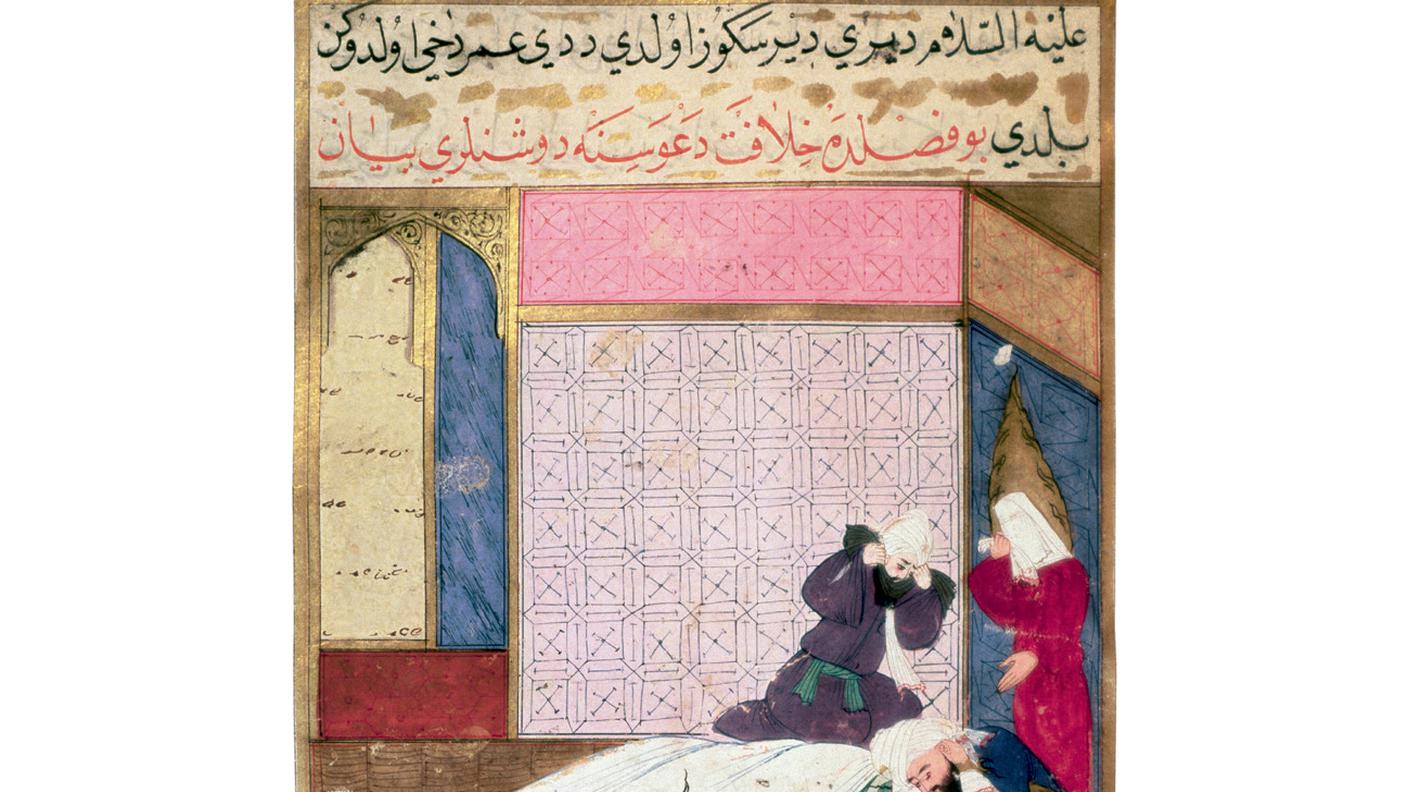 عليه السّلام ديري ديرسكوز اولدي ددي عمر دخي اولدوكن
بلدي بو فصلده خلافت دعوسنه دوشنلري بيان